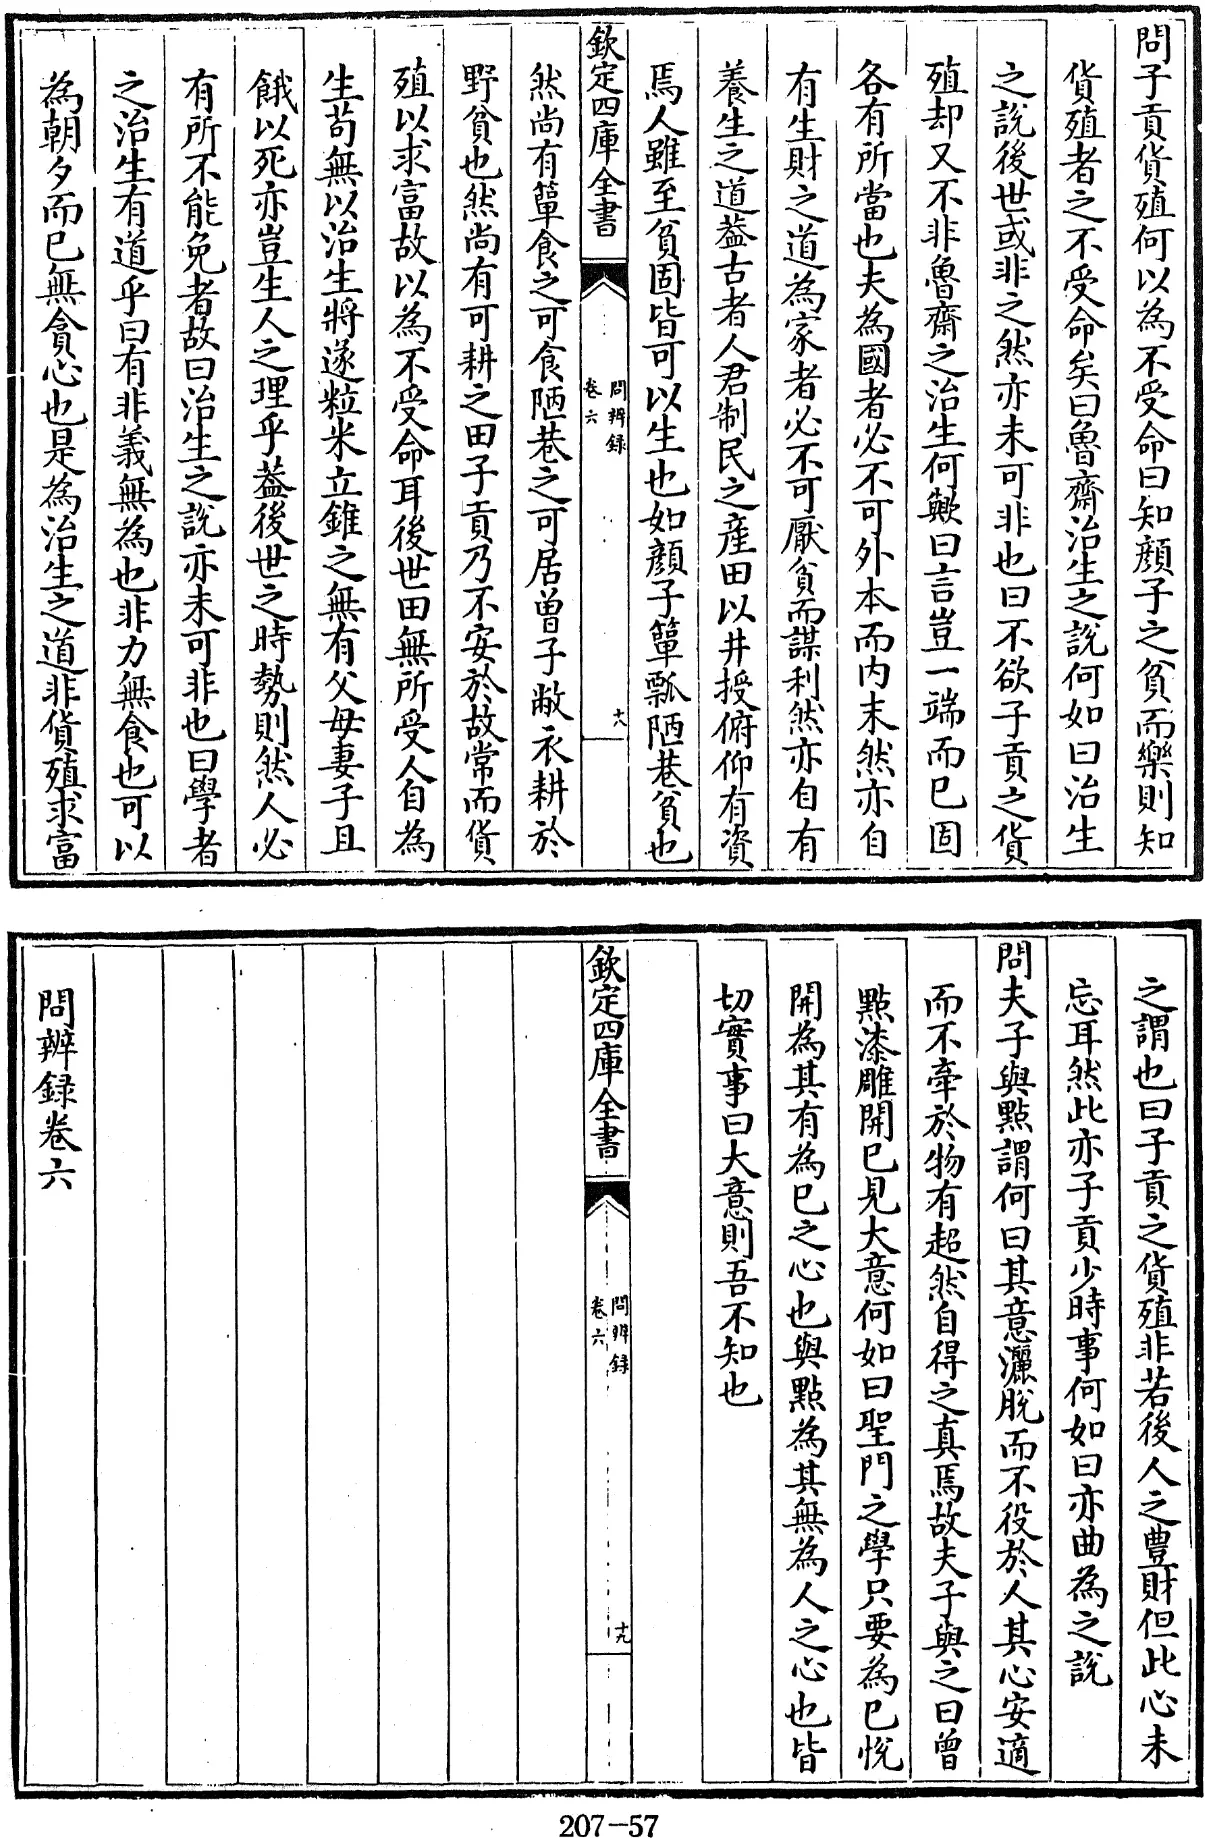 問子貢貨殖何以為不受命曰知顔子之貧而樂則知
貨殖者之不受命矣曰魯齋治生之説何如曰治生
之説後世或非之然亦未可非也曰不欲子貢之貨
殖却又不非魯齋之治生何歟曰言豈一端而已固
各有所當也夫為國者必不可外本而内末然亦自
有生財之道為家者必不可厭貧而謀利然亦自有
養生之道蓋古者人君制民之産田以井授俯仰有資
焉人雖至貧固皆可以生也如顔子簞瓢陋巷貧也
欽定四庫全書
問辨録
卷六
十八
然尚有簞食之可食陋巷之可居曾子敝衣耕於
野貧也然尚有可耕之田子貢乃不安於故常而貨
殖以求富故以為不受命耳後世田無所受人自為
生苟無以治生將遂粒米立錐之無有父母妻子且
餓以死亦豈生人之理乎蓋後世之時勢則然人必
有所不能免者故曰治生之説亦未可非也曰學者
之治生有道乎曰有非義無為也非力無食也可以
為朝夕而已無貪心也是為治生之道非貨殖求富
之謂也曰子貢之貨殖非若後人之豊財但此心未
忘耳然此亦子貢少時事何如曰亦曲為之説
問夫子與點謂何曰其意灑脱而不役於人其心安適
而不牽於物有超然自得之真焉故夫子與之曰曾
點漆雕開已見大意何如曰聖門之學只要為已悦
開為其有為已之心也與點為其無為人之心也皆
切實事曰大意則吾不知也
欽定四庫全書
問辨録
卷六
十九
問辨録卷六
207-57